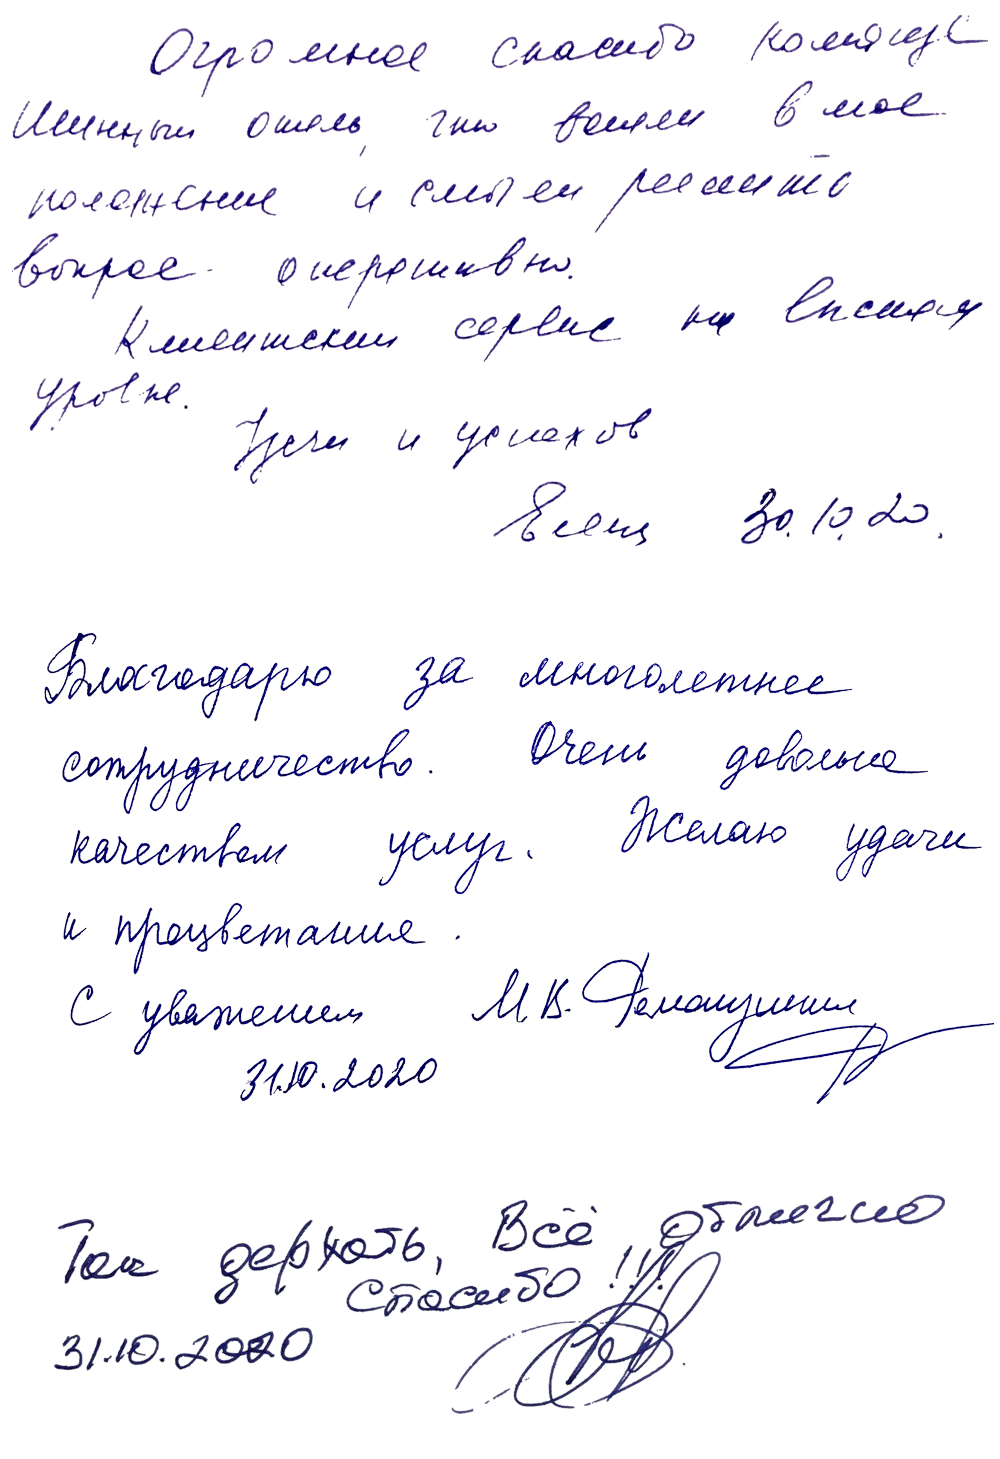 Огромное спасибо команде
Шинный отель, что вошли в мое
положение и смогли решить
вопрос оперативно.
Клиентский сервис на высшем
уровне.
Удачи и успехов
Елена 30.10.20.
Благодарю за многолетнее
сотрудничество. Очень довольна
качеством услуг. Желаю удачи
и процветания.
С уважением М.В.
31.10.2020
Так держать, Всё отлично
Спасибо!!!
31.10.2020